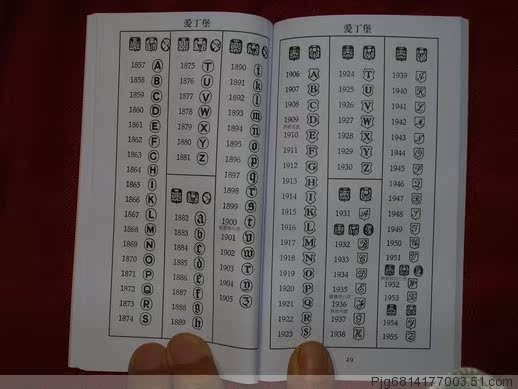 爱丁堡
1857 A
1858 B
1859 C
1860 D
1861 E
1862 F
1863 G
1864 H
1865 I
1866 K
1867 L
1868 M
1869 N
1870 O
1871 P
1872 Q
1873 R
1874 S
1875 T
1876 U
1877 V
1878 W
1879 X
1880 Y
1881 Z
1882 a
1883 b
1884 c
1885 d
1886 e
1887 f
1888 g
1889 h
1890 i
1891 k
1892 l
1893 m
1894 n
1895 o
1896 p
1897 q
1898 r
1899 s
1900 t
1901
1902
1903
1904
1905 z
爱丁堡
1906 A
1907 B
1908 C
1909 D
1910 E
1911 F
1912 G
1913 H
1914 I
1915 K
1916 L
1917 M
1918 N
1919 O
1920 P
1921 Q
1922 R
1923 S
1924 T
1925 U
1926 V
1927 W
1928 X
1929 Y
1930 Z
1931
1932
1933
1934
1935
1936
1937
1938
1939
1940
1941
1942
1943
1944
1945
1946
1947
1948
1949
1950
1951
1952
1953
1954
1955
49
Pjg6814177003.51.com